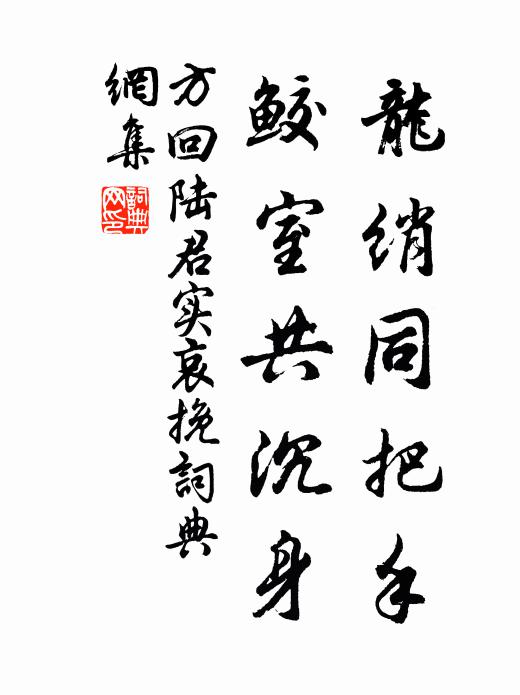 龍綃同把手
鮫室共沉身
方回陆君实哀挽詞典
網集
詞典網印